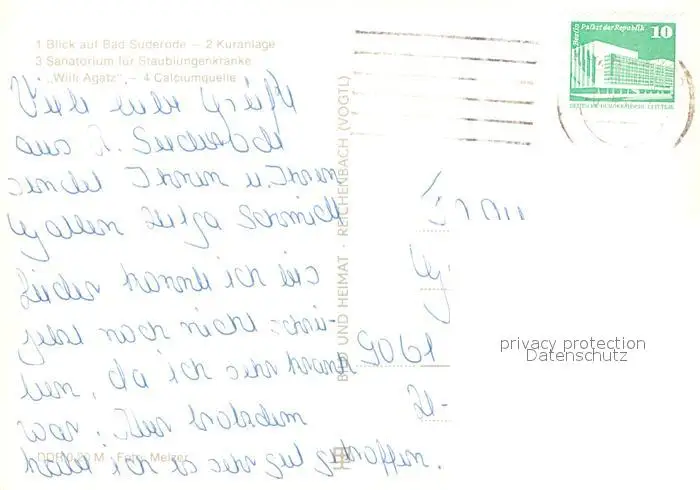 1 Blick auf Bad Suderode – 2 Kuranlage
3 Sanatorium für Staublungenkranke
„Willi Agatz“ – 4 Calciumquelle
Viele liebe Grüße
aus B. Suderode
sendet Ihnen u. Ihrem
Gatten Helga Schmidt
Leider konnte ich bis
jetzt noch nicht schrei-
ben, da ich sehr krank
war. Aber trotzdem
habe ich es sehr gut getroffen.
DDR 0,20 M · Foto: Melzer
BILD UND HEIMAT · REICHENBACH (VOGTL)
Berlin Palast der Republik
10
DEUTSCHE DEMOKRATISCHE REPUBLIK
9061
privacy protection
Datenschutz